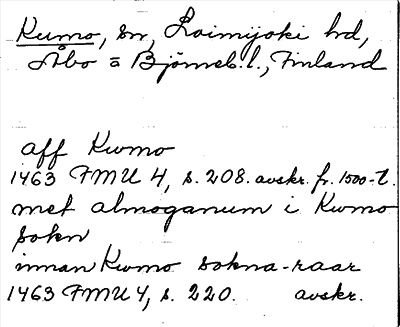 Kumo, sn, Loimijoki hd,
Åbo o Björneb. l., Finland
aff Kwmo
1463 FMU 4, s. 208. avskr. fr. 1500-t.
met almoganum i Kwmo
sokn
innan Kwmo sokna-raar
1463 FMU 4, s. 220. avskr.